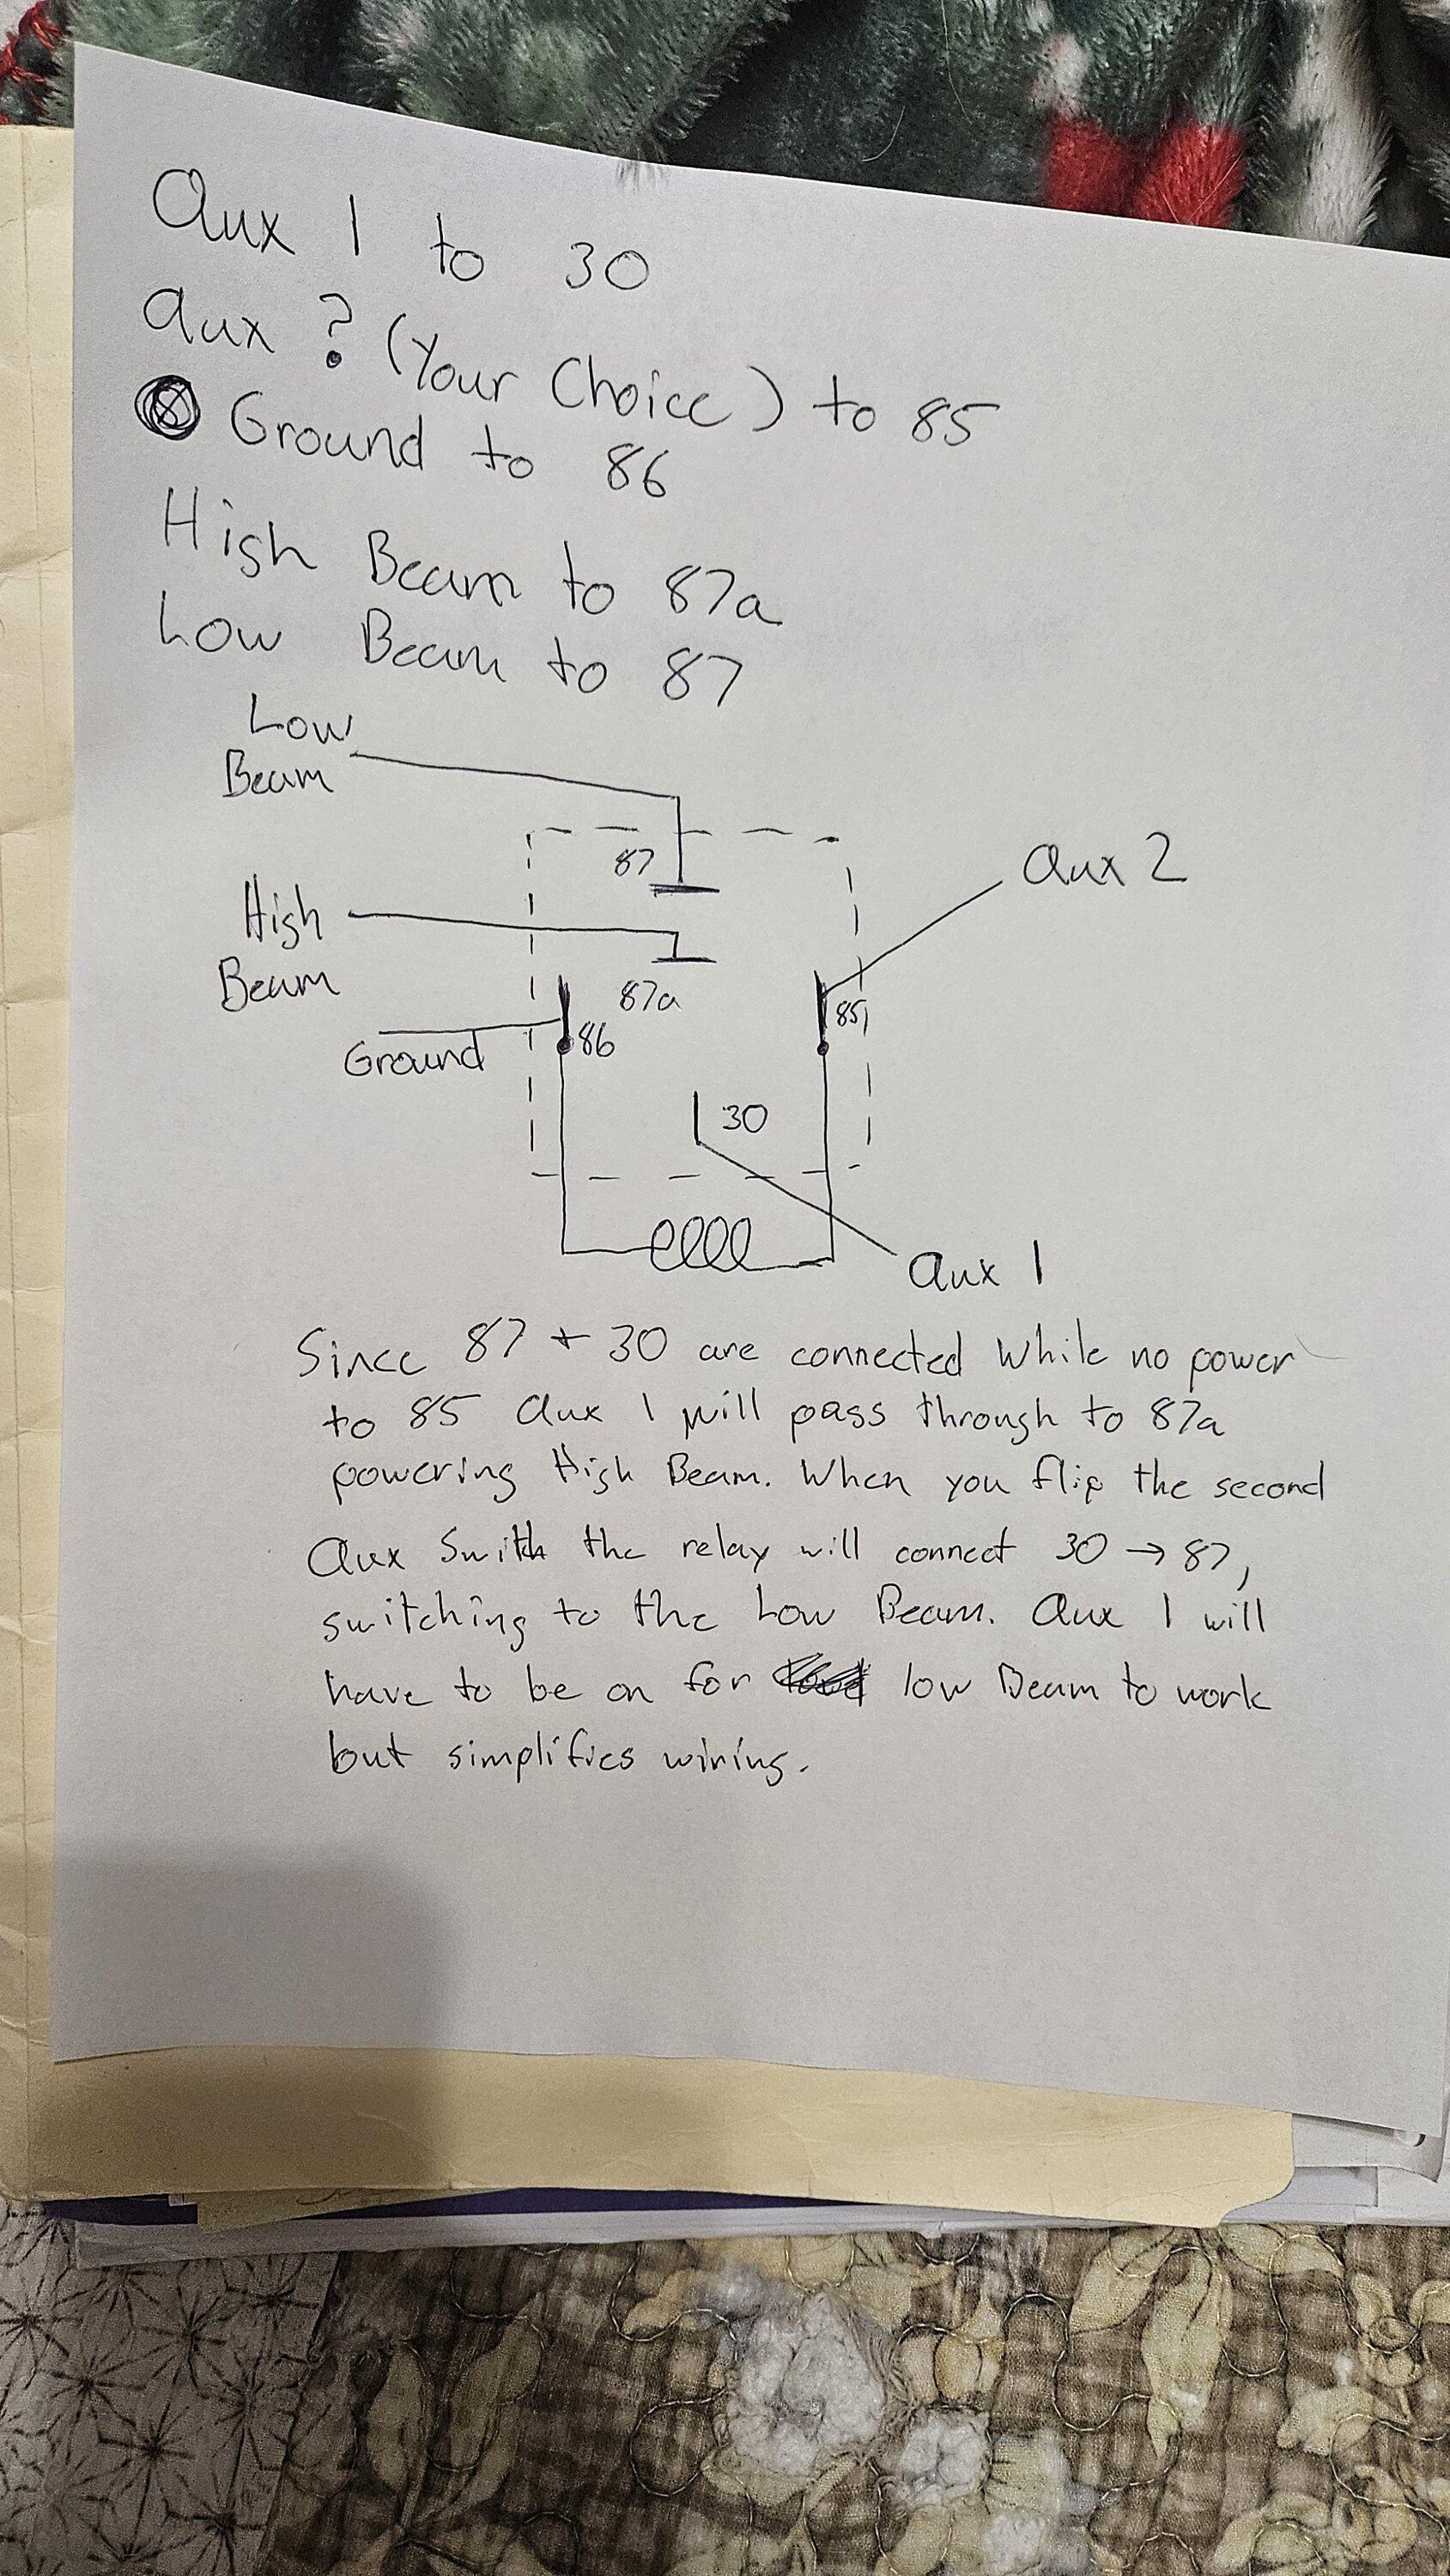 Aux 1 to 30
Aux ? (Your Choice) to 85
Ground to 86
High Beam to 87a
Low Beam to 87
Low
Beam
87
Aux 2
High
Beam
87a
85
86
Ground
30
Aux 1
Since 87 + 30 are connected while no power
to 85 Aux 1 will pass through to 87a
powering High Beam. When you flip the second
Aux Swith the relay will connect 30 → 87,
switching to the Low Beam. Aux 1 will
have to be on for low Beam to work
but simplifies wiring.